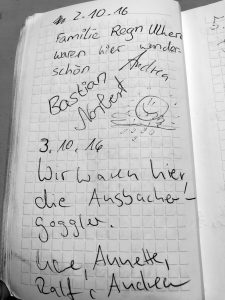 2.10.16
Familie
waren hier wunder
schön Andrea
Bastian
Norbert
3.10.16
Wir waren hier,
die Ansbacher-
goggler.
Annette,
Ralf, Andrea